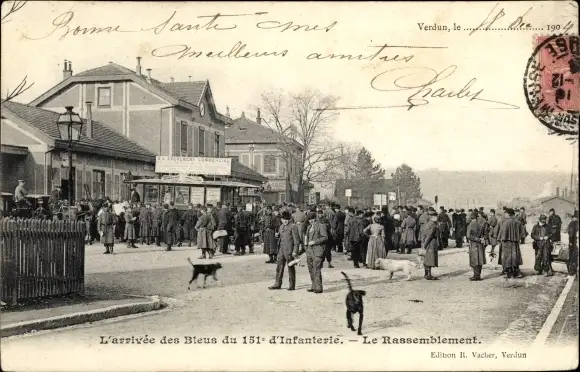 Bonne Santé mes
meilleurs amitiés
Charles
Verdun, le 18 Dec 1904
L'arrivée des Bleus du 151e d'Infanterie. - Le Rassemblement.
Edition R. Vacher, Verdun